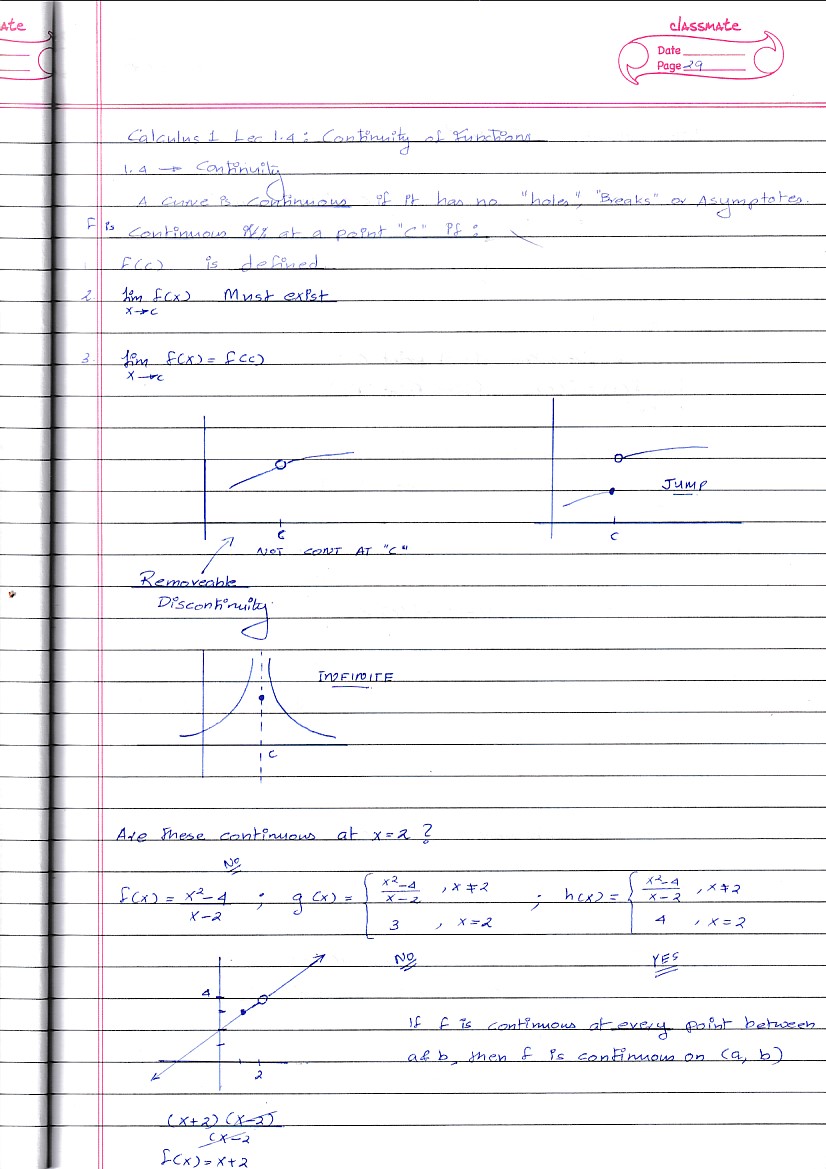 ATE
classmate
Date
Page 29
Calculus 1 Lec 1.4 : Continuity of Functions
1.4 → Continuity
A curve is continuous if it has no "holes", "Breaks" or Asymptotes.
F is continuous at a point "C" if :
f(c) is defined
2. lim f(x) Must exist
x→c
3. lim f(x) = f(c)
x→c
JUMP
C
C
NOT CONT AT "C"
Removeable
Discontinuity
INFINITE
C
Are these continuous at x=2 ?
No
f(x) = x²-4 / x-2 ; g(x) = { x²-4 / x-2 , x≠2 ; h(x) = { x²-4 / x-2 , x≠2
3 , x=2
4 , x=2
NO
YES
4
2
If f is continuous at every point between
a & b, then f is continuous on (a, b)
(x+2) (x-2)
(x-2
f(x) = x+2